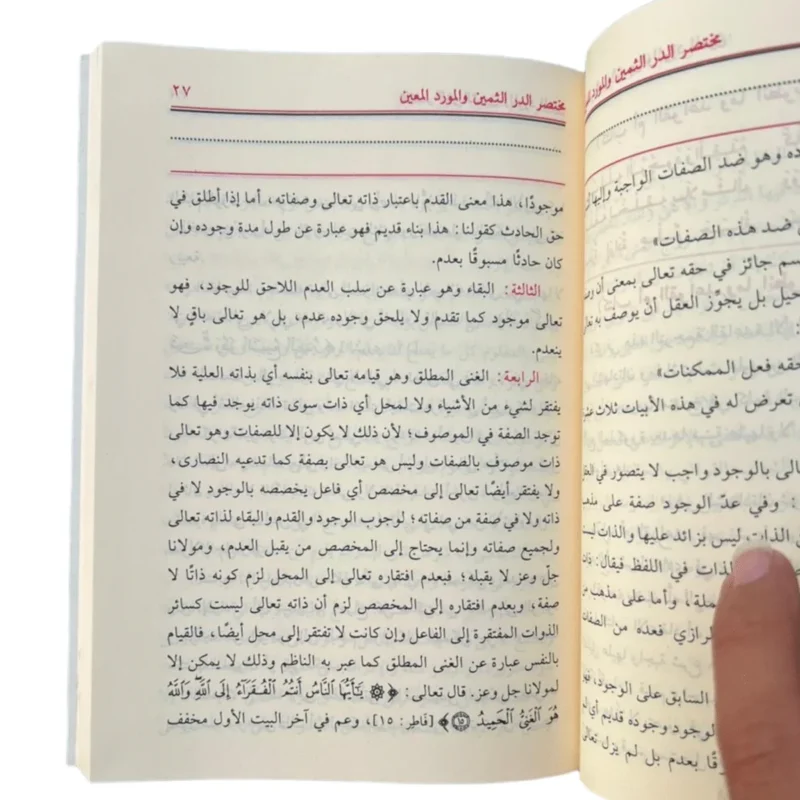 مختصر الدر الثمين والمورد المعين
ده وهو ضد الصفات الواجبة وإليها
ضد هذه الصفات»
سم جائز في حقه تعالى بمعنى أن
حيل بل يجوّز العقل أنْ يوصف به
حقه فعل الممكنات»
تعرض له في هذه الأبيات ثلاث
الى بالوجود واجب لا يتصور في
: وفي عدّ الوجود صفة على
الذات ليس بزائد عليها والذات
لذات في اللفظ فيقال:
ملة، وأما على مذهب
لرازي فعده من الصفات
السابق على الوجود،
لوجود وجوده قديم أي
قًا بعدم بل لم يزل تعالى
مختصر الدر الثمين والمورد المعين ٢٧
موجودًا، هذا معنى القدم باعتبار ذاته تعالى وصفاته، أما إذا أطلق في
حق الحادث كقولنا: هذا بناء قديم فهو عبارة عن طول مدة وجوده وإن
كان حادثًا مسبوقًا بعدم.
الثالثة: البقاء وهو عبارة عن سلب العدم اللاحق للوجود، فهو
تعالى موجود كما تقدم ولا يلحق وجوده عدم، بل هو تعالى باقٍ لا
ينعدم.
الرابعة: الغنى المطلق وهو قيامه تعالى بنفسه أي بذاته العلية فلا
يفتقر لشيء من الأشياء ولا لمحل أي ذات سوى ذاته يوجد فيها كما
توجد الصفة في الموصوف؛ لأن ذلك لا يكون إلا للصفات وهو تعالى
ذات موصوف بالصفات وليس هو تعالى بصفة كما تدعيه النصارى،
ولا يفتقر أيضًا تعالى إلى مخصص أي فاعل يخصصه بالوجود لا في
ذاته ولا في صفة من صفاته؛ لوجوب الوجود والقدم والبقاء لذاته تعالى
ولجميع صفاته وإنما يحتاج إلى المخصص من يقبل العدم، ومولانا
جلّ وعز لا يقبله؛ فبعدم افتقاره إلى المحل لزم كونه ذاتًا لا
صفة، وبعدم افتقاره إلى المخصص لزم أن ذاته تعالى ليست كسائر
الذوات المفتقرة إلى الفاعل وإن كانت لا تفتقر إلى محل أيضًا، فالقيام
بالنفس عبارة عن الغنى المطلق كما عبر به الناظم وذلك لا يمكن إلا
لمولانا جل وعز. قال تعالى: ﴿۞ يَٰٓأَيُّهَا ٱلنَّاسُ أَنتُمُ ٱلْفُقَرَآءُ إِلَى ٱللَّهِۖ وَٱللَّهُ
هُوَ ٱلْغَنِىُّ ٱلْحَمِيدُ ١٥﴾ [فَاطِر: ١٥]، وعم في آخر البيت الأول مخفف